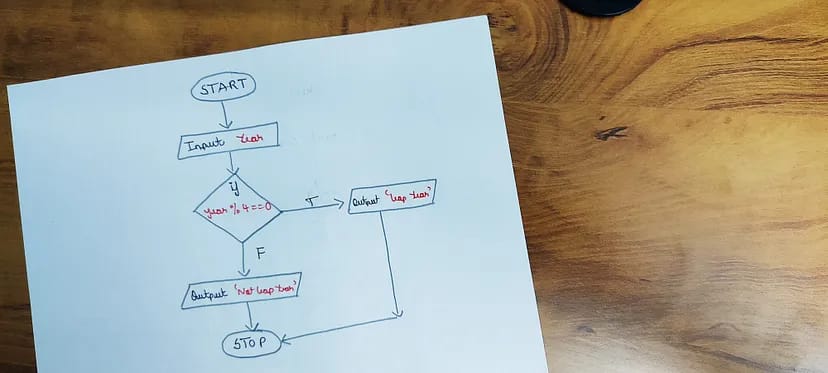 START
Input Year
If
year % 4 == 0
T
Output 'Leap Year'
F
Output 'Not Leap Year'
STOP